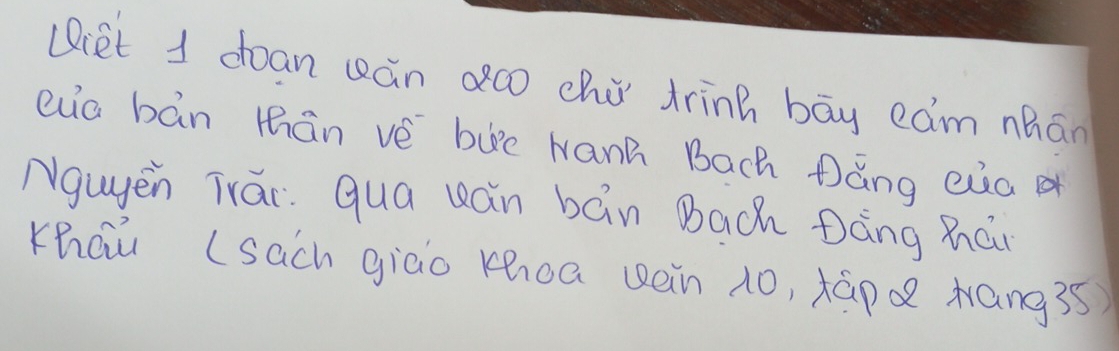 Viết 1 đoạn văn 200 chữ trình bày cảm nhận
của bản thân về bức tranh Bạch Đằng của
Nguyễn Trãi. qua văn bản Bạch Đằng hải
khẩu (sách giáo khoa văn 10, tập 2 trang 35)